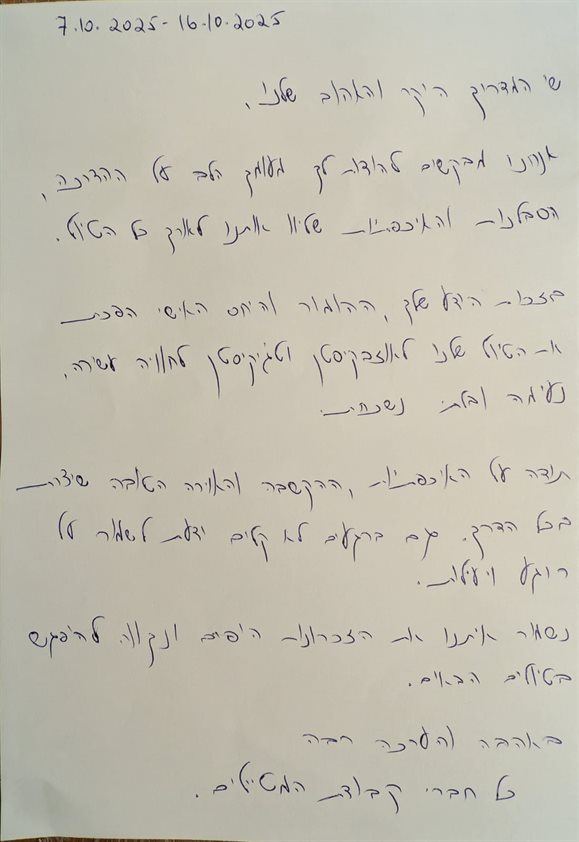 7.10.2025-16.10.2025
שי המדריך היקר והאהוב שלנו,
אנחנו מבקשים להודות לך מעומק הלב על ההדרכה,
הסבלנות והאיכפתיות שליוו אותנו לאורך כל הטיול.
בזכות הידע שלך, ההומור והיחס האישי הפכת
את הטיול שלנו לאוזבקיסטן וטג'יקיסטן לחוויה עשירה,
נעימה ובלתי נשכחת.
תודה על האיכפתיות, ההקשבה והאוירה הטובה שיצרת
בכל הדרך. גם ברגעים לא קלים ידעת לשמור על
רוגע ויעילות.
נשמור איתנו את הזכרונות היפים ונקווה להיפגש
בטיולים הבאים.
באהבה והערכה רבה
כל חברי קבוצת המטיילים.